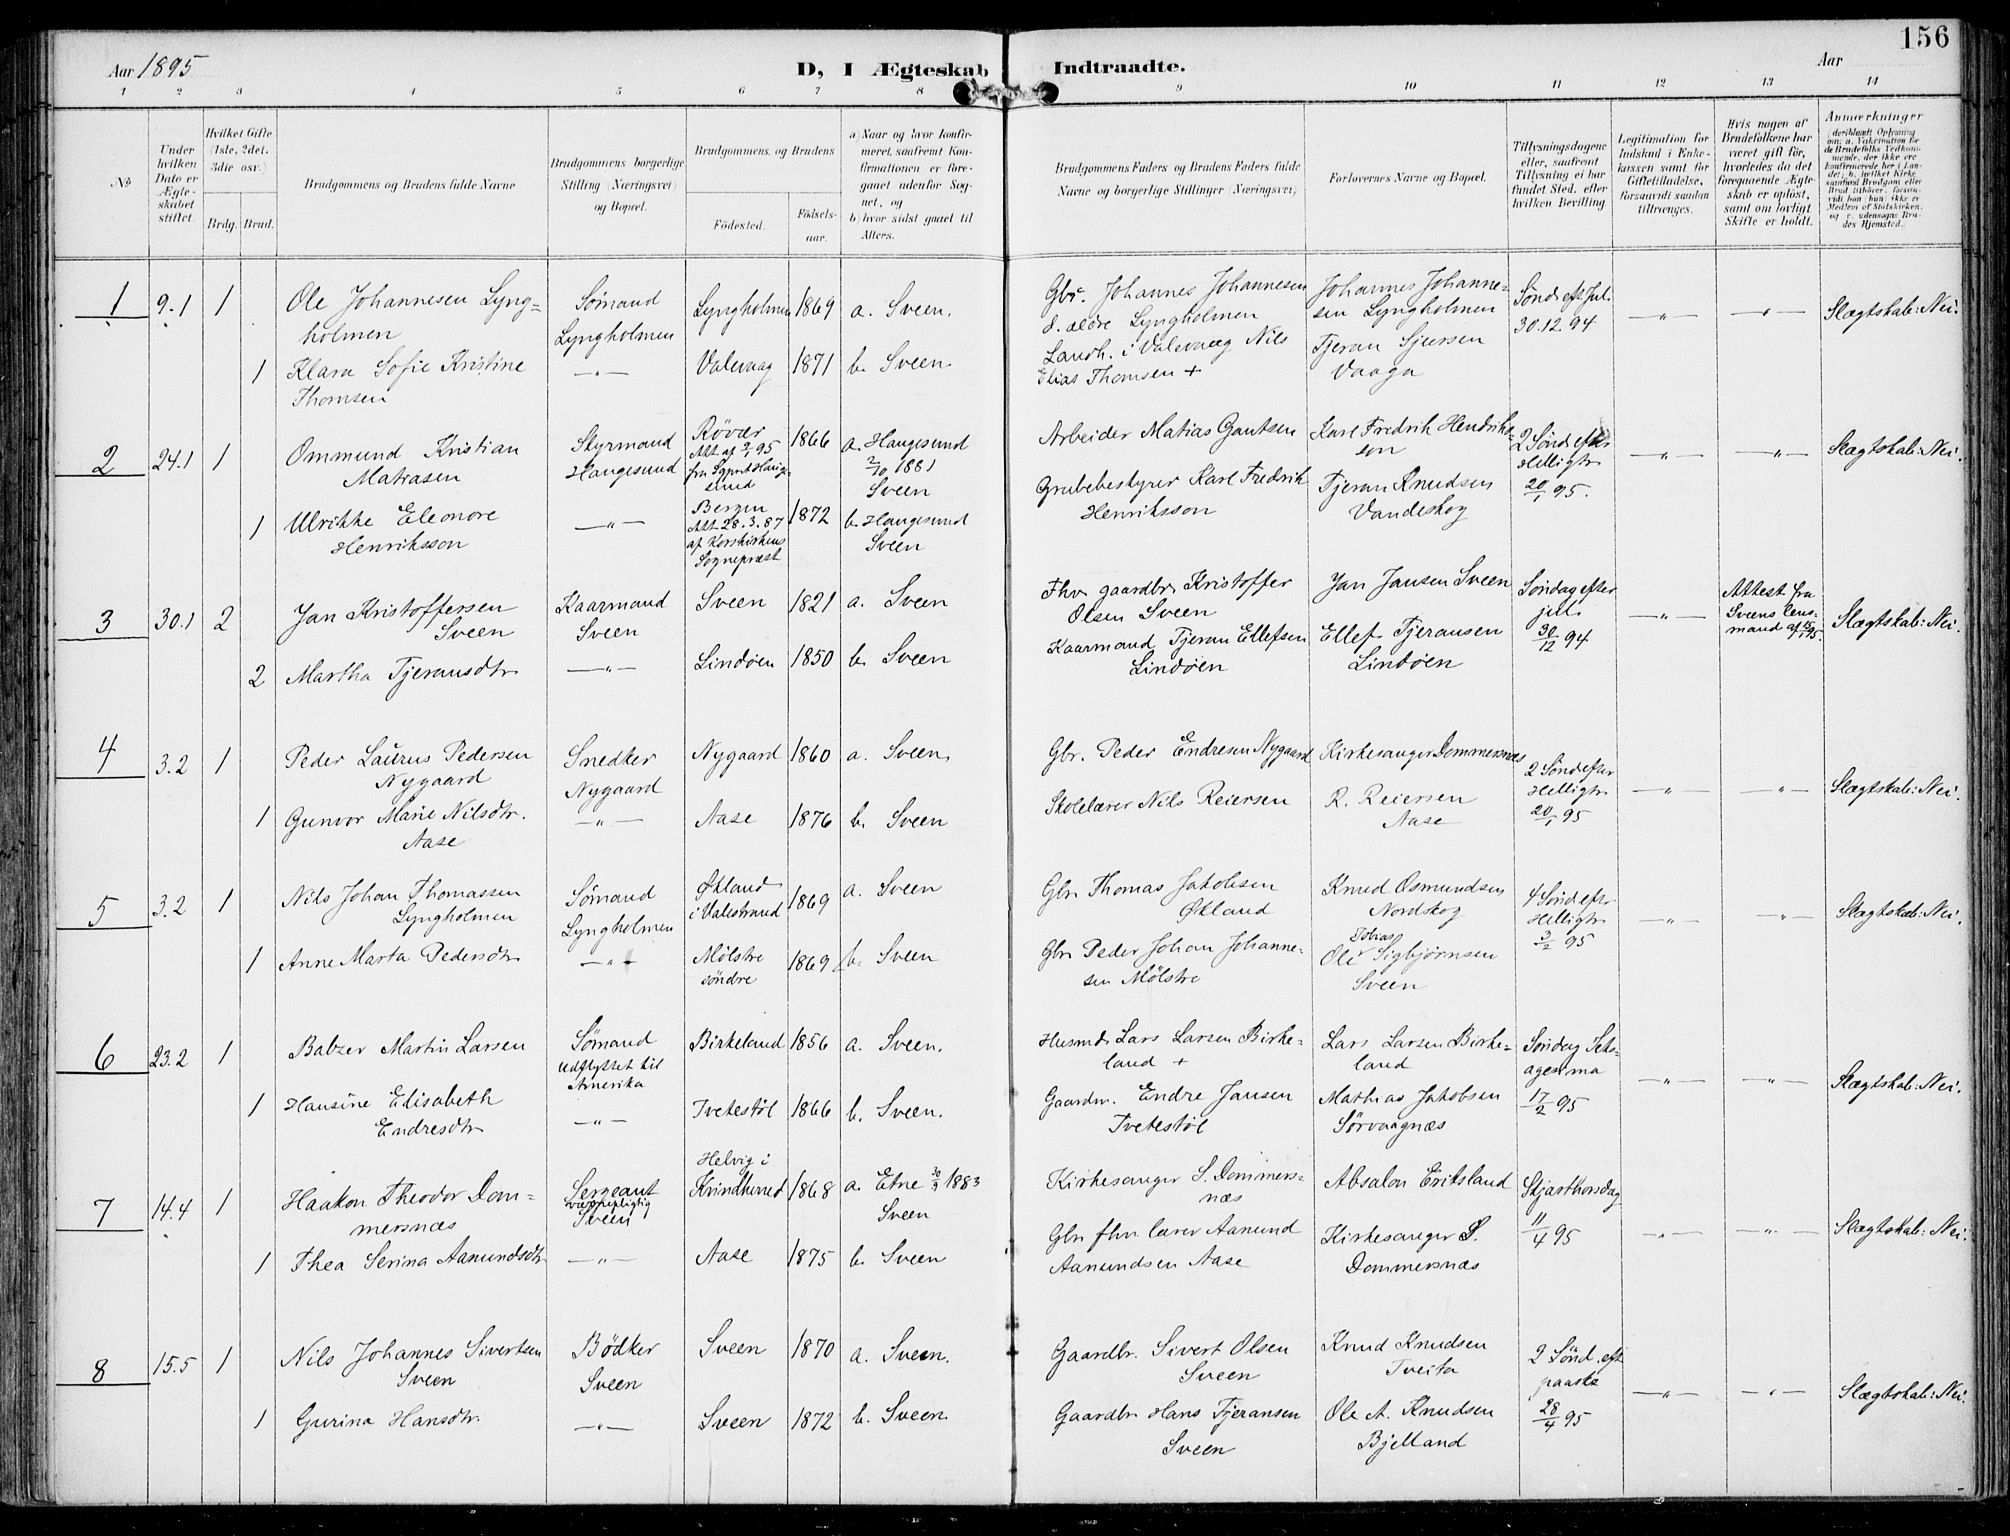 156
Aar 1895
D, I Ægteskab Indtraadte.
Aar
1 2 3 4 5 6 7 8 9 10 11 12 13 14
No
Under hvilken Dato er Ægteskabet stiftet.
Hvilket Gifte (1ste, 2det, 3die osv.)
Brdg. Brud.
Brudgommens og Brudens fulde Navne
Brudgommens borgerlige Stilling (Næringsvei) og Bopæl.
Brudgommens og Brudens
Fødested.
Fødselsaar.
a) Naar og hvor Konfirmeret, saafremt Konfirmationen er foregaaet udenfor Sognet, og
b) hvor sidst gaaet til Alters.
Brudgommens Faders og Brudens Faders fulde Navne og borgerlige Stillinger (Næringsvei)
Forlovernes Navne og Bopæl.
Tillysningsdagene eller, saafremt Tillysning ei har fundet Sted, efter hvilken Bevilling.
Legitimation for Indskud i Enkekassen samt for Giftetilladelse, forsaavidt saadan tiltrænges.
Hvis nogen af Brudefolkene har været gift før, hvorledes da det foregaaende Ægteskab er opløst, samt om lovligt Skifte er holdt.
Anmærkninger
(deriblandt Oplysning om: a. Vakcination for de Brudefolks Vedkommende, der ikke ere konfirmerede her i Landet; b. hvilket Kirkesamfund Brudgom eller Brud tilhører, forsaavidt han (hun) ikke er Medlem af Statskirken, og c. udensogns Brudes Hjemsted.)
1 9.1 1
Ole Johannesen Lyng=
holmen
Sømand
Lyngholmen
Lyngholmen 1869 a. Sveen.
Gbr. Johannes Johannesen
d. ældre Lyngholmen
Johannes Johanne=
sen Lyngholmen
Sønd eft. Jul.
30.12.94
—„— —„— Slægtskab: Nei.
1 Klara Sofie Kristine
Thomsen
—„— Valevaag 1871 b. Sveen.
Landh. i Valevaag Nils
Elias Thomsen +
Tjeran Sjursen
Vaaga
2 24.1 1
Ommund Kristian
Matiasen
Styrmand
Haugesund
Røvær
Att. af 2/1 95
fra Sognpr. i Haugesund
1866 a. Haugesund
2/10 1881
Sveen
Arbeider Matias Gautsen
Karl Fredrik Hendriks=
son
2 Sønd efter
Helligtr
20/1 95.
—„— —„— Slægtskab: Nei.
1 Ulrikke Eleonore
Henriksson
—„—
Bergen
Att. 28.3.87
af Korskirkens
Sognepræst
1872 b. Haugesund
Sveen
Grubebestyrer Karl Fredrik
Henriksson
Tjeran Knudsen
Vandeskog
3 30.1 2
Jan Kristoffersen
Sveen
Kaarmand
Sveen
Sveen 1821 a. Sveen
Fhv. gaardbr. Kristoffer
Olsen Sveen
Jan Jansen Sveen
Søndag efter
jul
30/12 94
—„—
Attest fra
Sveens lens=
mand af 15/1 95
Slægtskab: Nei.
2 Martha Tjeransdtr
—„— Lindøen 1850 b. Sveen
Kaarmand Tjeran Ellefsen
Lindøen
Ellef Tjeransen
Lindøen
4 3.2 1
Peder Laurus Pedersen
Nygaard
Snedker
Nygaard
Nygaard 1860 a. Sveen.
Gbr. Peder Endresen Nygaard
Kirkesanger Dommersnæs
2 Sønd efter
Helligtr
20/1 95
—„— —„— Slægtskab: Nei.
1 Gunvor Marie Nilsdtr.
Aase
—„— Aase 1876 b. Sveen
Skolelærer Nils Reiersen
R. Reiersen
Aase
5 3.2 1
Nils Johan Thomassen
Lyngholmen
Sømand
Lyngholmen
Økland
i Valestrand
1869 a. Sveen
Gbr Thomas Jakobsen
Økland
Knud Osmundsen
Nordskog
4 Sønd eftr
Helligtr
3/2 95
—„— —„— Slægtskab: Nei.
1 Anne Marta Pedersdtr
—„— Mølstre
søndre
1869 b. Sveen
Gbr Peder Johan Johanne=
sen Mølstre
Tobias
Ole Sigbjørnsen
Sveen
6 23.2 1
Balzer Martin Larsen
Sømand
udflyttet til
Amerika
Birkeland 1856 a. Sveen.
Husmd. Lars Larsen Birke=
land +
Lars Larsen Birke=
land
Søndag Seks=
agesima
17/2 95
—„— —„— Slægtskab: Nei.
1 Hansine Elisabeth
Endresdtr
—„— Tvetestøl 1866 b. Sveen.
Gaardm. Endre Jansen
Tvetestøl
Mathias Jakobsen
Sørvaagnæs
7 14.4 1
Haakon Theodor Dom=
mersnæs
Sergeant
værnepligtig
Sveen
Helvig i
Kvindherred
1868 a. Etne 30/9 1883
Sveen
Kirkesanger S. Dommers=
næs
Absalon Eriksland
Skjærthorsdag
11/4 95
—„— —„— Slægtskab: Nei.
1 Thea Serina Aamundsdtr
—„— Aase 1875 b. Sveen
Gbr fhv lærer Aamund
Aamundsen Aase
Kirkesanger S.
Dommersnæs
8 15.5 1
Nils Johannes Sivertsen
Sveen
Bødker
Sveen
Sveen 1870 a. Sveen.
Gaardbr. Sivert Olsen
Sveen
Knud Knudsen
Tveita
2 Sønd. eft
paaske
28/4 95
—„— —„— Slægtskab: Nei.
1 Gurina Hansdtr.
—„— Sveen 1872 b. Sveen.
Gaardbr Hans Tjeransen
Sveen
Ole A. Knudsen
Bjelland